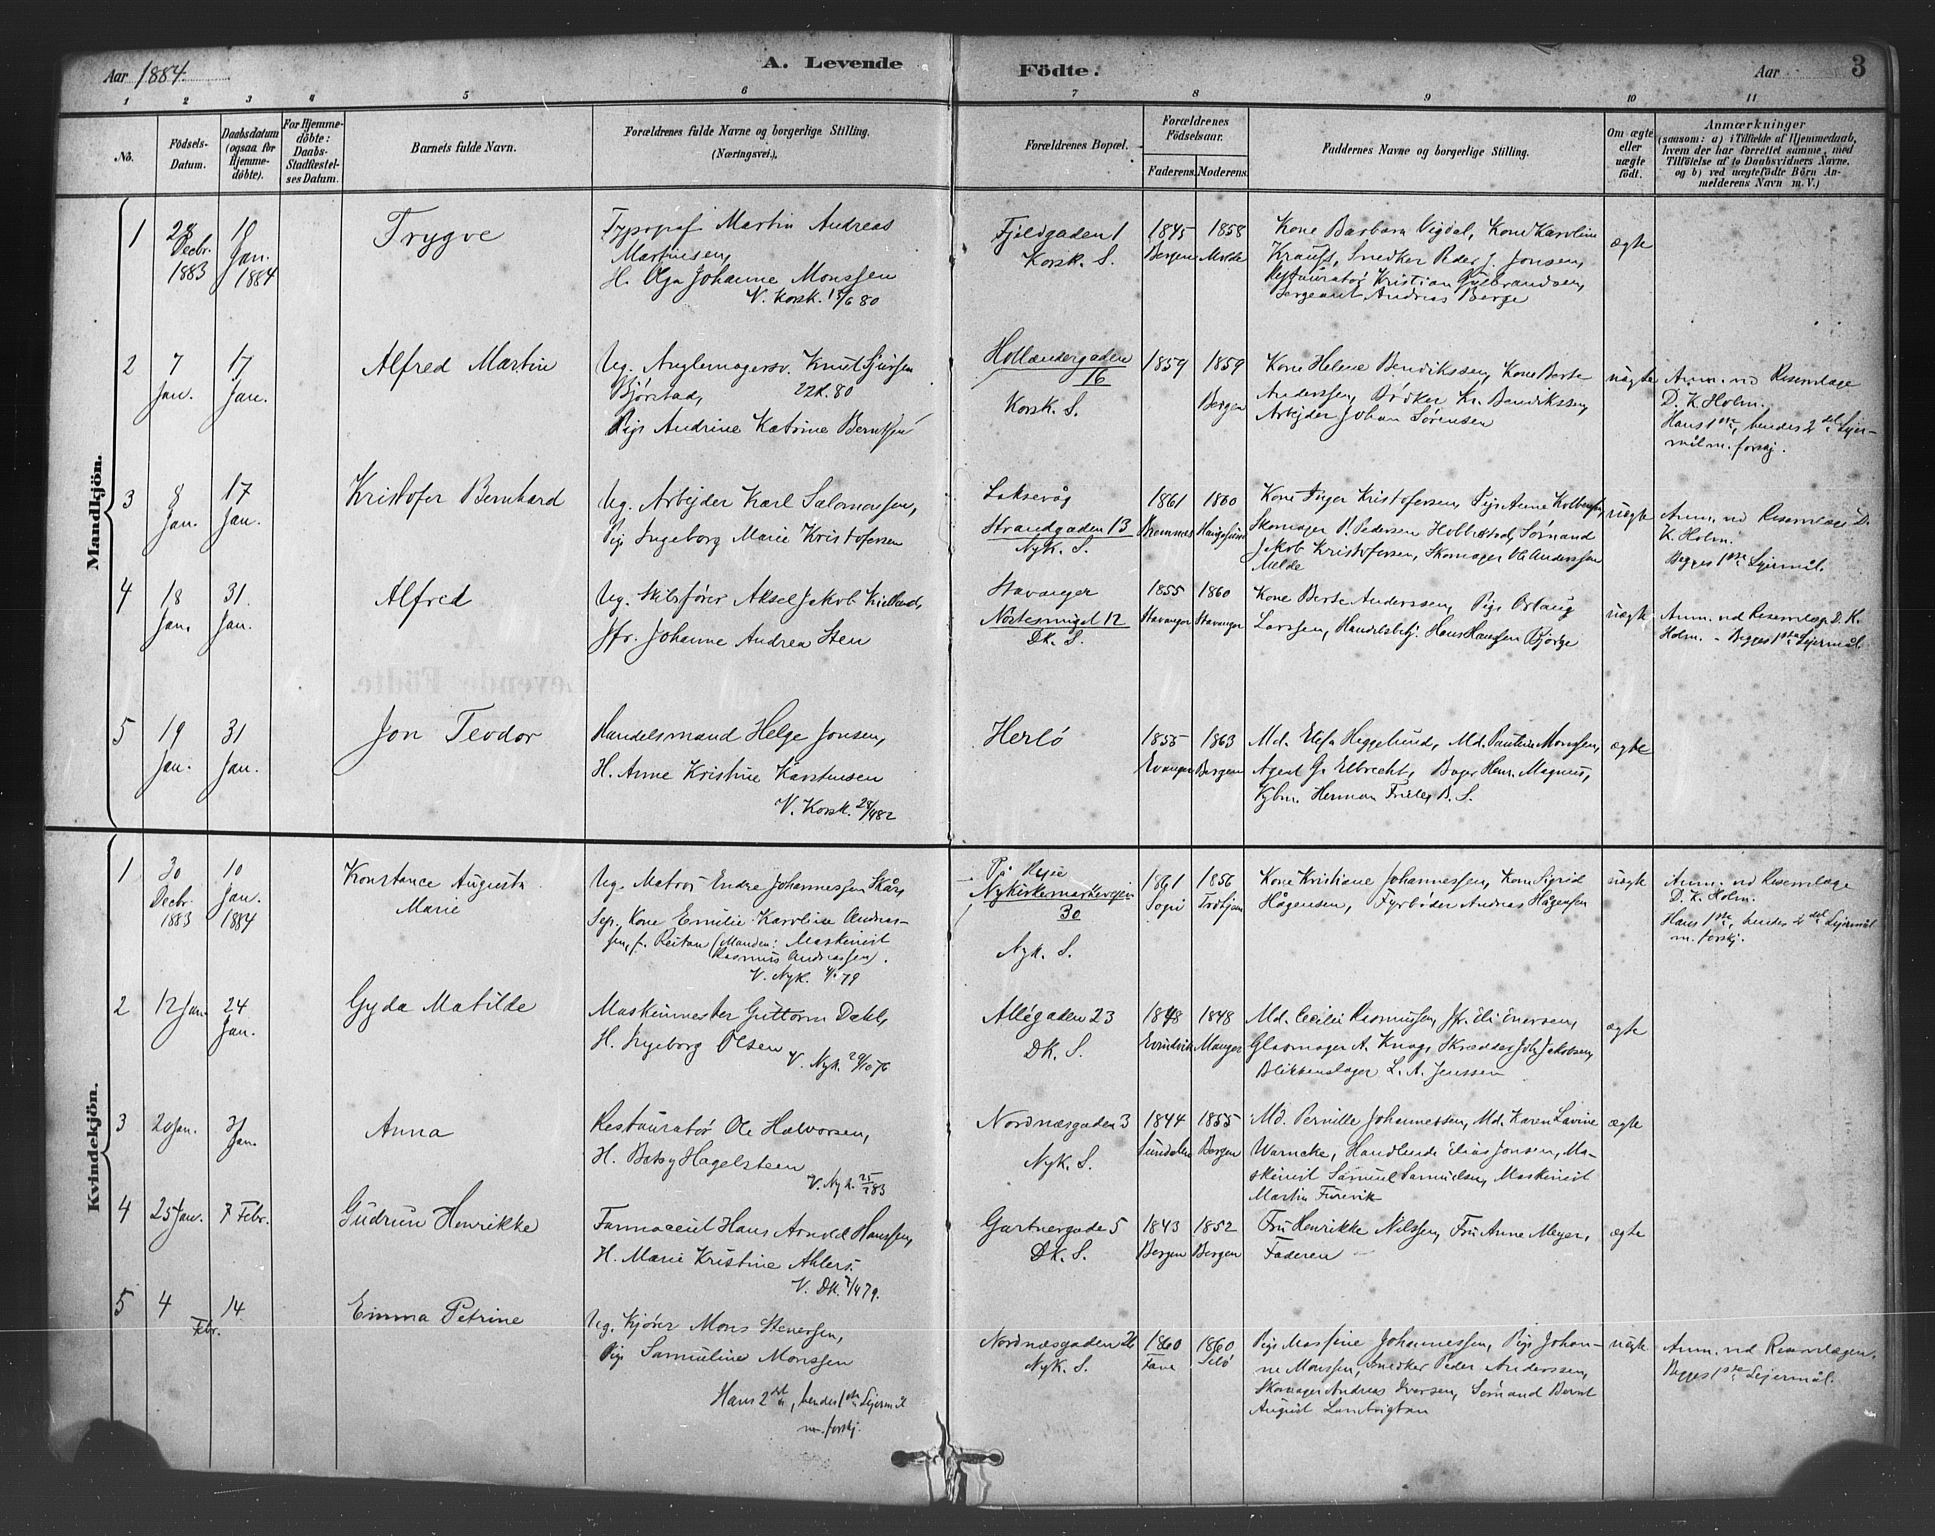 Aar 1884.
A. Levende
Födte.
Aar
3
1 2 3 4 5 6 7 8 9 10 11
No.
Födsels-
Datum.
Daabsdatum
(ogsaa for
Hjemme-
döbte).
For Hjemme-
döbte:
Daabs-
Stadfæstel-
ses Datum.
Barnets fulde Navn.
Forældrenes fulde Navne og borgerlige Stilling.
(Næringsvei.)
Forældrenes Bopæl.
Forældrenes
Födselsaar.
Faderens. Moderens.
Faddernes Navne og borgerlige Stilling.
Om ægte
eller
uægte
födt.
Anmærkninger
(saasom: a) i Tilfælde af Hjemmedaab,
hvem der har forrettet samme, med
Tilföielse af to Daabsvidners Navne,
og b) ved uægtefödte Börn An-
melderens Navn m. V.)
Mandkjön.
1
28
Decbr.
1883
10
Jan.
1884
Trygve
Typograf Martin Andreas
Martinsen,
H. Olga Johanne Monssen
V. Korsk. 13/6 80
Fjeldgaden 1
Korsk. S.
1845
Bergen
1858
Molde
Kone Barbara Vigdal, Kone Karoline
Krauss, Snedker Peder J. Jonsen,
Restauratør Kristian Gulbrandsen,
Sergeant Andreas Berge
ægte
2
7
Jan.
17
Jan.
Alfred Martin
Ug. Anglemagersv. Knut Sjursen
Bjørstad, 22d. 80
Pige Andrine Katrine Berntsen
Hollændergaden
16
Korsk. S.
1859
1859
Bergen
Kone Helene Bendikssen, Kone Berte
Anderssen, Bødker Kr. Bendikssen,
Arbejder Johan Sørensen
uægte
Anm. ved Reservlæge
D. K. Holm.
Hans 1ste, hendes 2det Lejer-
målm. forskj.
3
8
Jan.
17
Jan.
Kristofer Bernhard
Ug. Arbejder Karl Salomonsen,
Pige Ingeborg Marie Kristofersen
Laksevåg
Strandgaden 13
Nyk. S.
1861
Bremnes
1860
Haugesund
Kone Inger Kristofersen, Pige Anne Kolbensen,
Skomager P. Pedersen Hobbestad, Sømand
Jakob Kristofersen, Skomager Ole Anderssen
Melde
uægte
Anm. ved Reservlæge D.
K. Holm.
Begges 1ste Lejermål.
4
18
Jan.
31
Jan.
Alfred
Ug. Skibsfører Aksel Jakob Kielland,
Jfr. Johanne Andrea Sten
Stavanger
Nøstesmuget 12
DK. S.
1855
Stavanger
1860
Stavanger
Kone Berte Anderssen, Pige Oslaug
Larssen, Handelsbetj. Hans Hanssen Bjørge
uægte
Anm. ved Reservlæge D. K.
Holm. - Begges 1ste Lejermål.
5
19
Jan.
31
Jan.
Jon Teodor
Handelsmand Helge Jonsen,
H. Anne Kristine Karstensen
V. Korsk. 28/4 82
Herlø
1855
Evanger
1863
Bergen
Md. Elefa Heggelund, Md. Pauline Monssen,
Agent G. Elbrecht, Bager Henr. Magnus,
Kjbm. Herman Friele, B. S.
ægte
Kvindekjön.
1
30
Decbr.
1883
10
Jan.
1884
Konstance Augusta
Marie
Ug. Matros Endre Johannessen Skår,
Sep. Kone Emilie Karoline Andreas-
sen, f. Reitan (Manden: Maskinist
Rasmus Andreassen).
V. Nyk. 79
På Rejse
Nykirkemarkevejen
30
Nyk. S.
1861
Sogn
1856
Trdhjem
Kone Kristiane Johannessen, Kone Sigrid
Hågensen, Fyrbøder Andreas Hågensen
uægte
Anm. ved Reservlæge
D. K. Holm.
Hans 1ste, hendes 2det Lejermål
m. forskj.
2
12 Jan.
24
Jan.
Gyda Matilde
Maskinmester Guttorm Dahl,
H. Ingeborg Olsen
V. Nyk. 29/10 76
Allégaden 23
DK. S.
1848
Evindvik
1848
Manger
Md. Cecilie Rasmussen, Jfr. Eli Enersen,
Glasmager A. Knag, Skrædder Joh. Jakobsen,
Blikkenslager L. A. Jenssen
ægte
3
20 Jan.
31
Jan.
Anna
Restauratør Ole Halvorsen,
H. Betsy Hagelsteen
V. Nyk. 25/2 83
Nordnæsgaden 3
Nyk. S.
1844
Sundalen
1855
Bergen
Md. Pernille Johannessen, Md. Karen Lavine
Warncke, Handlende Elias Jonsen, Ma-
skinist Samuel Samuelsen, Maskinist
Martin Furevik
ægte
4
25 Jan.
7 Febr.
Gudrun Henrikke
Farmaceut Hans Arnold Hanssen,
H. Marie Kristine Ahlers.
V. DK. 7/4 79.
Gartnergade 5
DK. S.
1843
Bergen
1852
Bergen
Fru Henrikke Nilssen, Fru Anne Meyer,
Faderen
ægte
5
4
Febr.
14
Emma Petrine
Ug. Kjører Mons Stenersen,
Pige Samueline Monssen
Hans 2det, hendes 1ste Lejermål
m. forskj.
Nordnæsgaden 26
Nyk. S.
1860
Fane
1860
Selø
Pige Massine Johannessen, Pige Johan-
ne Monssen, Snedker Peder Anderssen,
Skomager Andreas Iversen, Sømand Bernt
August Landvigtan
uægte
Anm. ved Reservlægen.
Begges 1ste Lejermål.